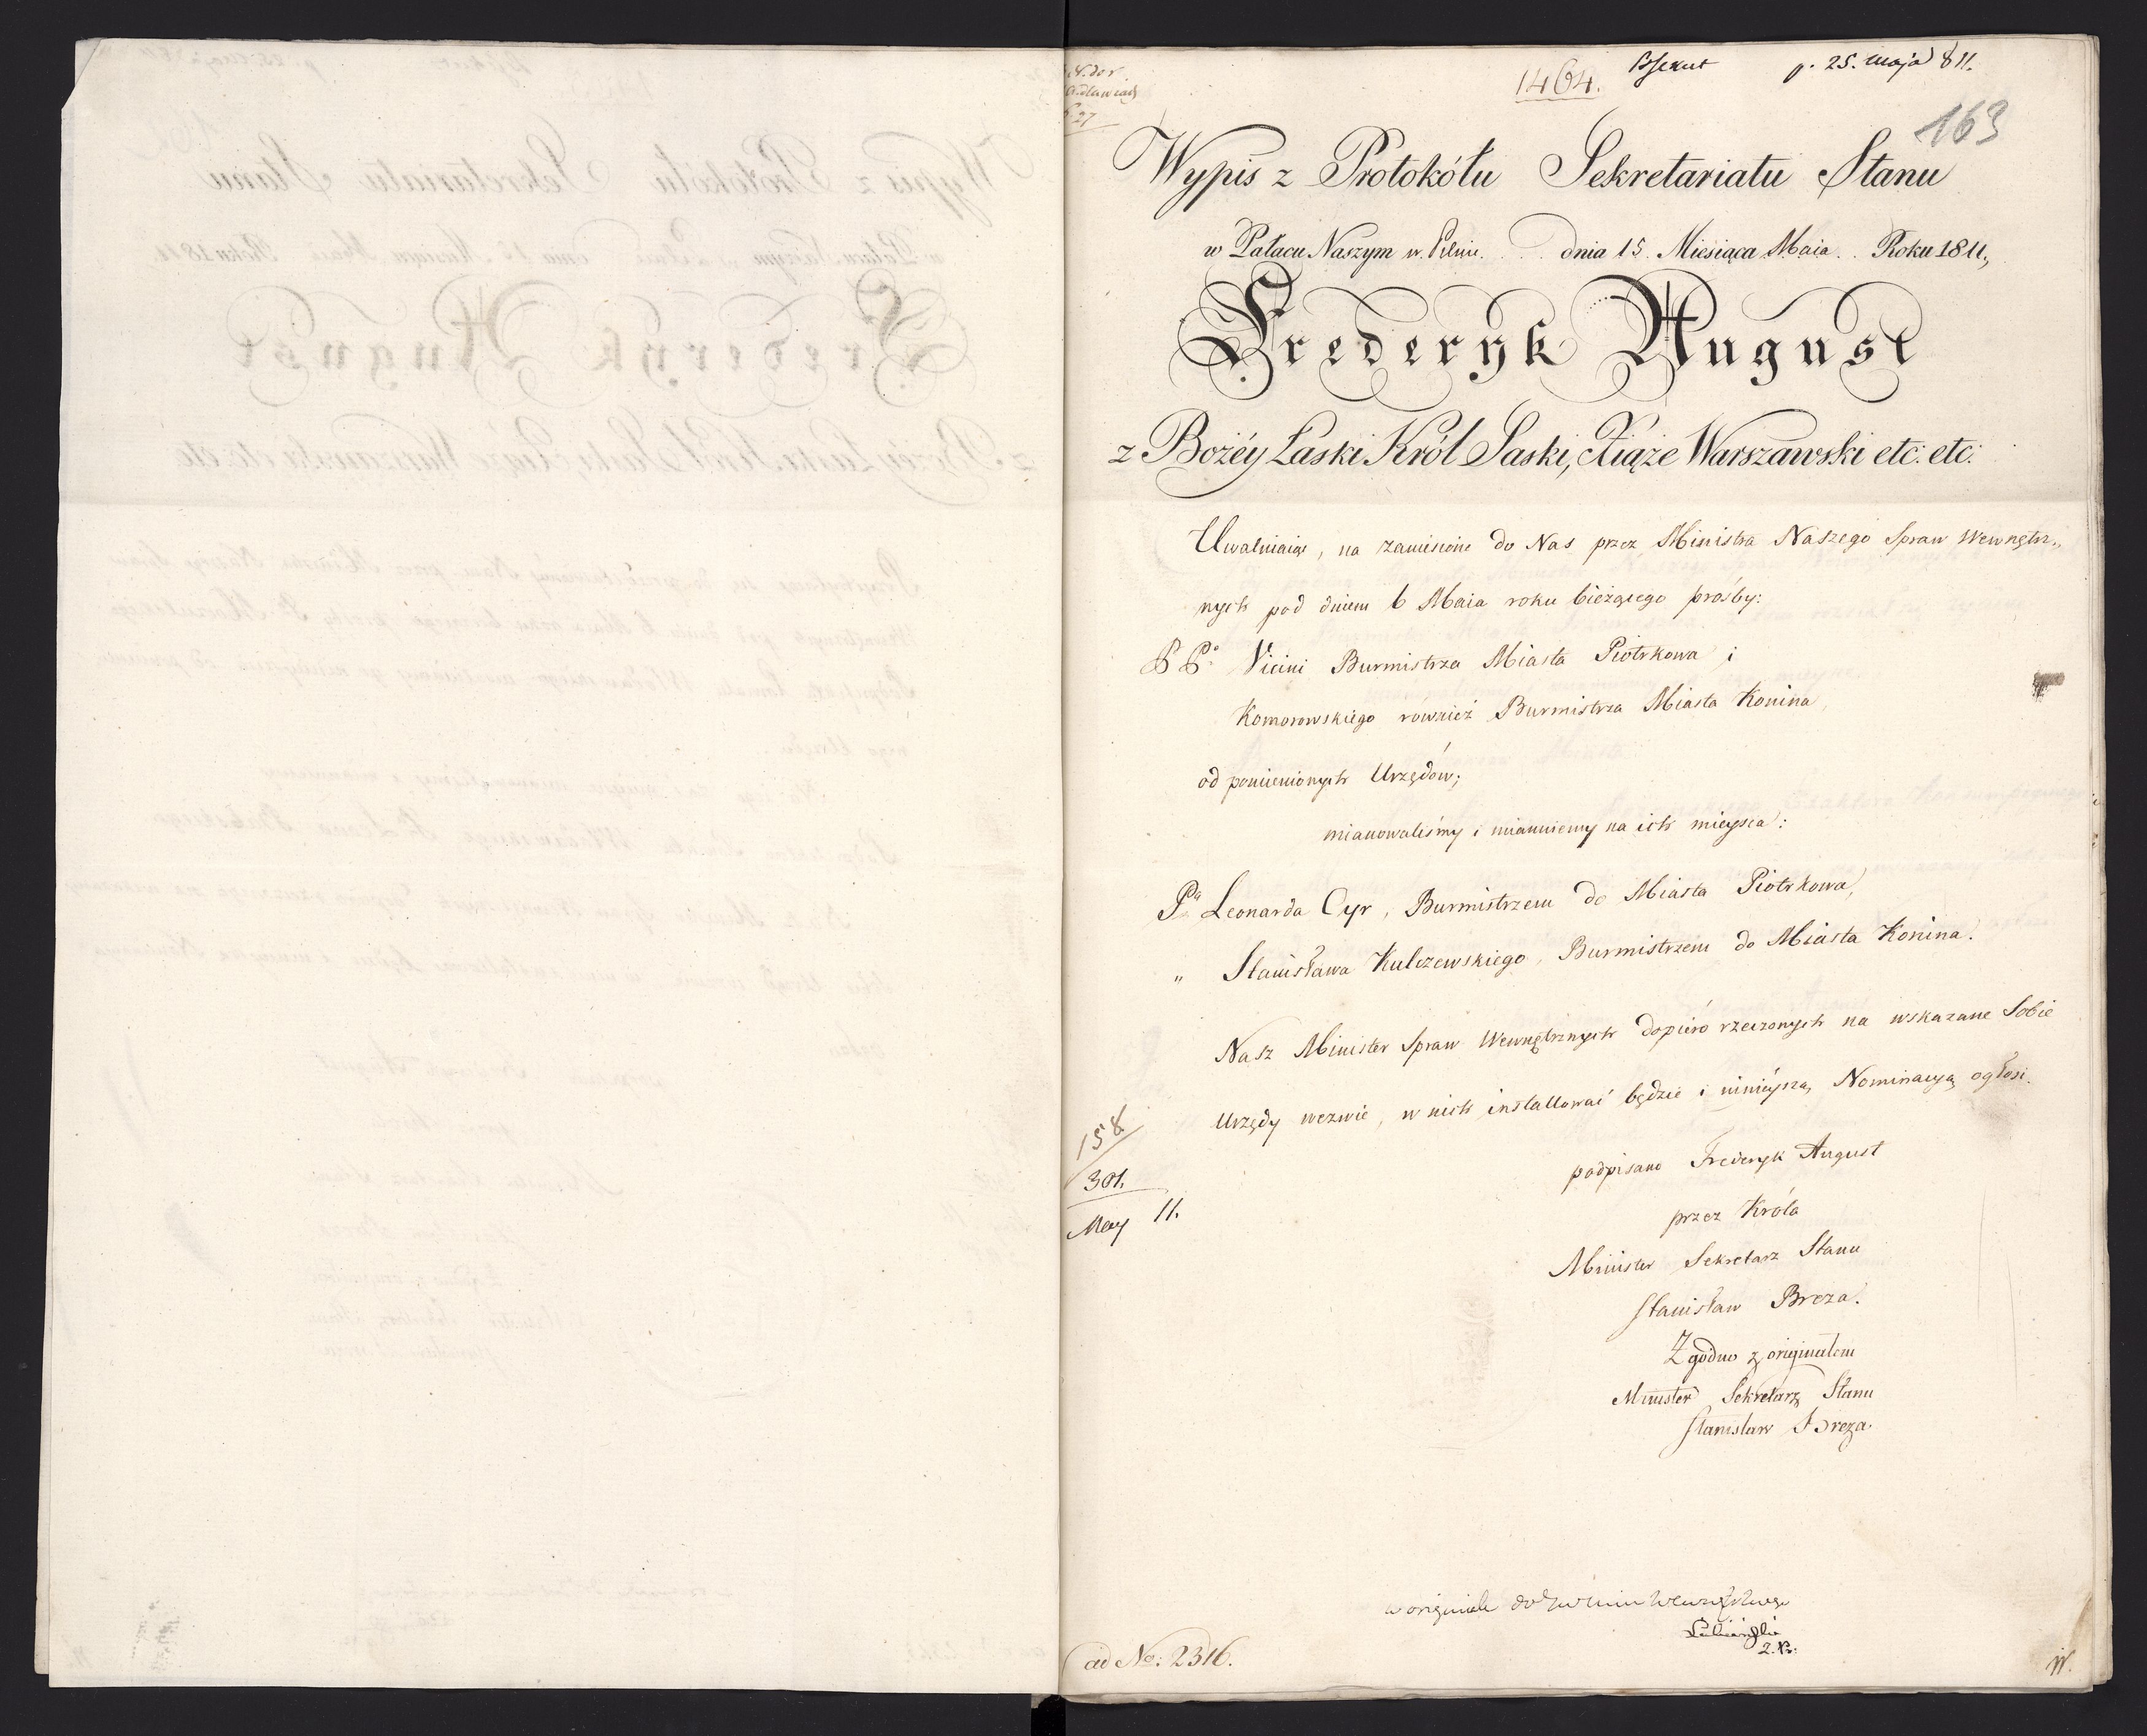 1464.
p. 25. maja 811.
163
27
Wypis z Protokółu Sekretariatu Stanu
w Pałacu Naszym w. Pilnic. dnia 15. Miesiąca Maia. Roku 1811.,
Frederyk August
z Bożéy Łaski Król Saski, Xiąże Warszawski etc: etc:
Uwalniaiąc, na zaniesione do Nas przez Ministra Naszego Spraw Wewnętrz„
nych pod dniem 6 Maia roku bieżącego prośby:
PP. Vicini Burmistrza Miasta Piotrkowa i
Komorowskiego również Burmistrza Miasta Konina,
od pomienionych Urzędów;
mianowaliśmy i mianuiemy na ich mieysca:
Pa Leonarda Cyr, Burmistrzem do Miasta Piotrkowa,
„ Stanisława Kulczewskiego, Burmistrzem do Miasta Konina.
Nasz Minister Spraw Wewnętrznych dopiéro rzeczonych na wskazane Sobie
Urzędy wezwie, w nich installować będzie i ninieyszą Nominacyą ogłosi.
158
301.
May 11.
podpisano Frederyk August
przez Króla
Minister Sekretarz Stanu
Stanisław Breza.
Zgodno z originałem
Minister Sekretarz Stanu
Stanisław Breza.
w originale
ad No: 2316.
W.